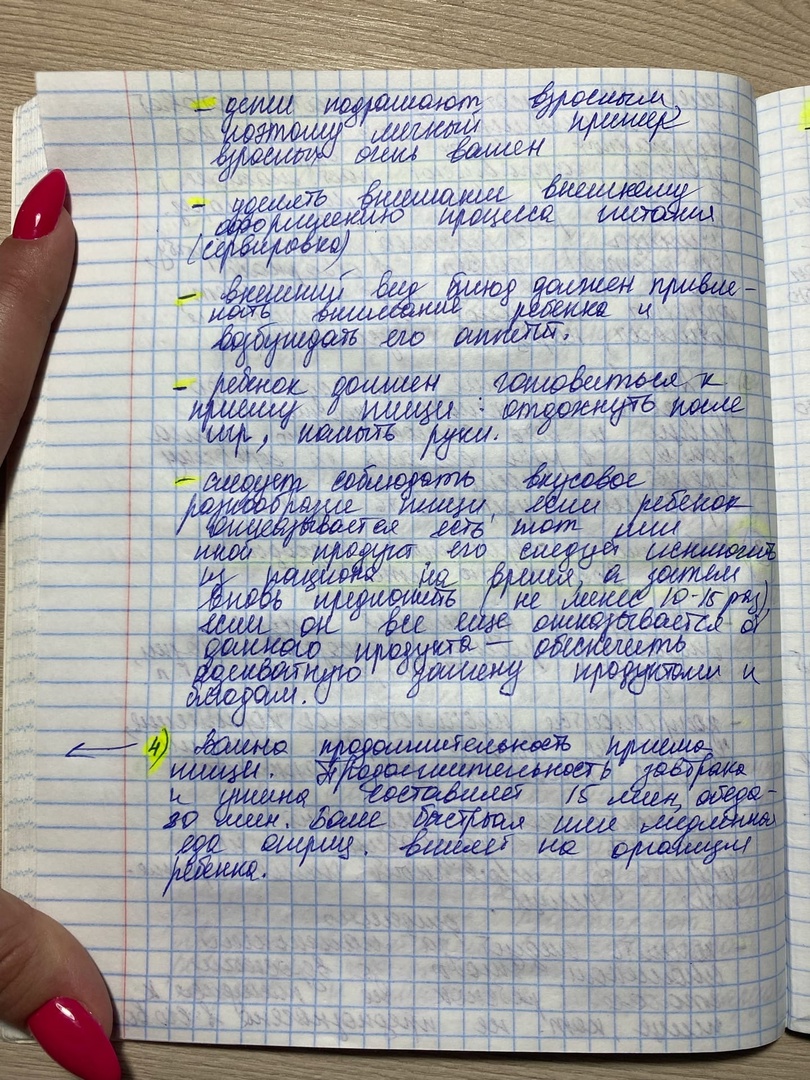 - дети подражают взрослым,
поэтому личный пример
взрослых очень важен
- уделять внимание внешнему
оформлению процесса питания
(сервировка)
- внешний вид блюд должен привле-
кать внимание ребенка и
возбуждать его аппетит.
- ребенок должен готовиться к
приему пищи: отдохнуть после
игр, помыть руки.
- следует соблюдать вкусовое
разнообразие пищи, если ребенок
отказывается есть тот или
иной продукт его следует исключить
из рациона на время, а затем
вновь предложить (не менее 10-15 раз),
если он все еще отказывается от
данного продукта — обеспечить
адекватную замену продуктами и
блюдами.
4) Важна продолжительность приема
пищи. Продолжительность завтрака
и ужина составляет 15 мин, обеда-
30 мин. Более быстрая или медленная
еда отриц. влияет на организм
ребенка.